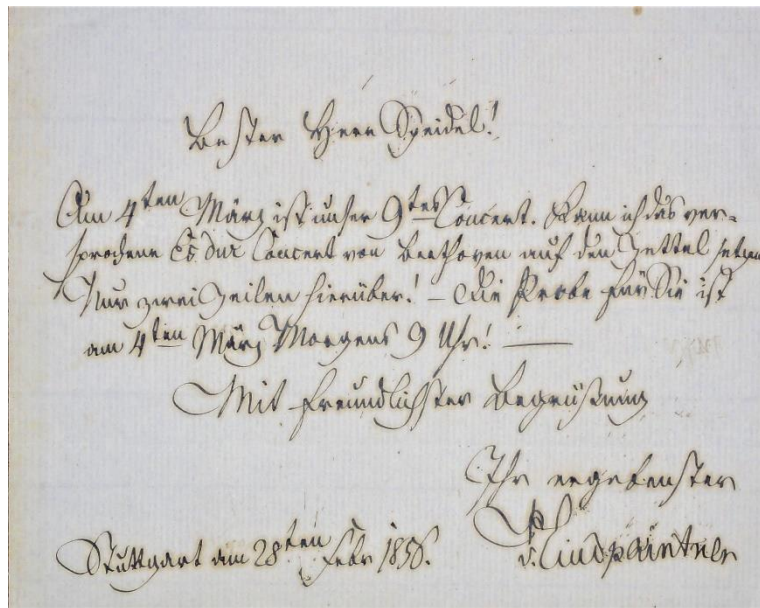 Bester Herr Speidel!
Am 4ten März ist unser 9tes Concert. Kann ich das ver=
sprochene Es dur Concert von Beethoven auf den Zettel setzen
Nur zwei Zeilen hierüber! – Die Probe für Sie ist
am 4ten März Morgens 9 Uhr! —
Mit freundlichster Begrüßung
Ihr ergebenster
P. v. Lindpaintner
Stuttgart am 28ten Febr 1856.